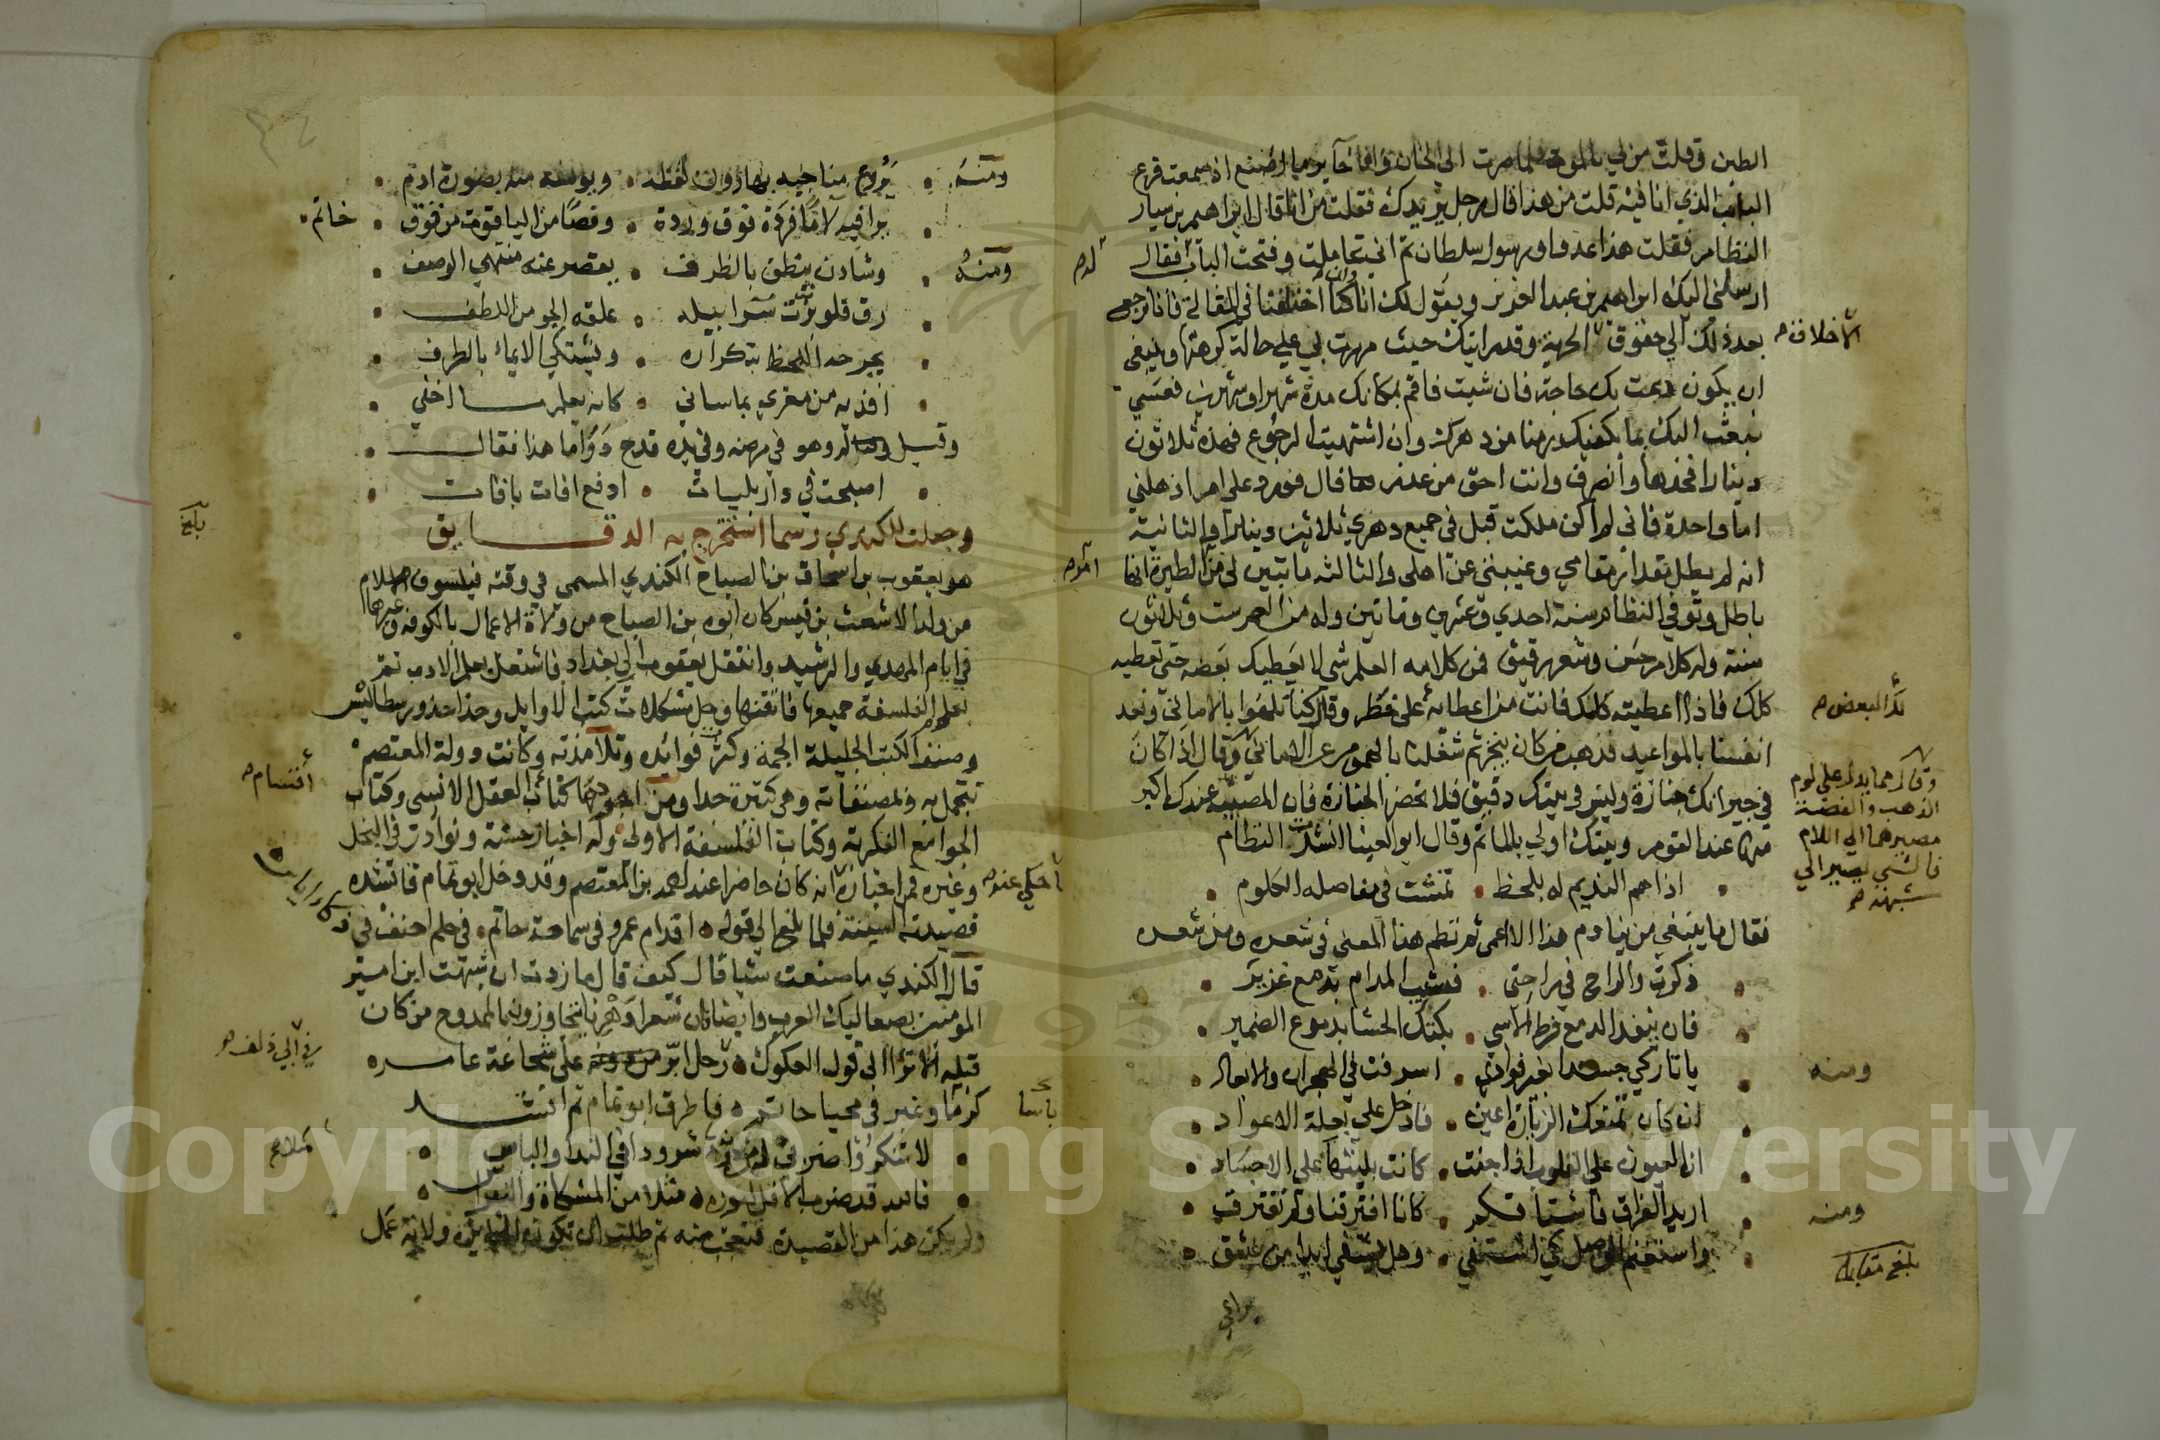 الطين وقلت من لي بالموت فلما صرت الى الخان وانا حائر ما اصنع اذ سمعت قرع
الباب الذي انا فيه قلت من هذا قال رجل يريدك فقلت من انا قال ابراهيم بن سيار
النظام فقلت هذا عدو او رسول سلطان ثم اني تحاملت وفتحت الباب فقال
ارسلني اليك ابراهيم بن عبد العزيز ويقول لك انا وان كنا اختلفنا في المقالة فانا نرجع
بعد ذلك الى حقوق الاخلاق والحرية وقد رايتك حيث مررت بي على حالة كرهتها وينبغي
ان يكون دعت بك حاجة فان شيت فاقم بمكانك مدة شهر او شهرين فعسى
نبعث اليك بما يكفيك زمنا من دهرك وان اشتهيت الرجوع فهذه ثلاثون
دينارا فخذها وانصرف وانت احق من عذر قال فورد على امر اذهلني
اما واحدة فاني لم اكن ملكت قبل في جميع دهري ثلاثين دينارا والثانية
انه لم يطل مقدار مقامي وغيبتي عن اهلي والثالثة ما تبين لي من الطيرة انها
باطل وتوفي النظام سنة احدى وعشرين وماتين وله من العمر ست وثلاثون
سنة وله كلام حسن وشعر رقيق فمن كلامه العلم شي لا يعطيك بعضه حتى تعطيه
كلك فاذا اعطيته كلك فانت من اعطائه على خطر وقال كنا نلهوا بالاماني ونعد
انفسنا بالمواعيد فذهب من كان ينجز ثم شغلنا بالهموم عن الاماني وقال اذا كان
في جيرانك جنازة وليس في بيتك دقيق فلا تحضر الجنازة فان المصيبة عندك اكبر
منها عند القوم وبيتك اولى بالماتم وقال ابو العينا انشدت النظام
اذا هم النديم له بلحظ • تمشت في مفاصله الكلوم
فقال ما ينبغي من ينادم هذا الا اعمى ثم نظم هذا المعنى في شعره ومن شعره
ذكرت والراح في راحتي • فشيب المدام بدمع غزير
فان ينفد الدمع فرط الاسى • بكتك الحشا بدموع الضمير
ومنه
يا تاركي جسدا بغير فواد • اسرفت في الهجران والابعاد
ان كان تمنعك الزيارة اعين • فادخل علي بعلة العواد
ان العيون على القلوب اذا جنت • كانت بليتها على الاجساد
ومنه
اريد الفراق فاشتاقكم • كانا افترقنا ولم نفترق
واستغنم الوصل كي اشتفي • وهل يشتفي ابدا من عشق
بلغ مقابلة
الاخلاق
لك البعض
وقال مما يدل على لوم
الذهب والفضة
مصيرهما الى اللام
فالشي يصير الى
شبهه
ومنه
ومنه
بصورة ادم
برا فيه لاما فردة فوق وردة • وفصا من الياقوت من فوق • خاتم
ومنه
وشادن ينطق بالظرف • يقصر عنه منتهى الوصف
رق فلو بزت سرابيله • علقه الجو من اللطف
يجرحه اللحظ بتكراره • ويشتكي الايماء بالطرف
افديه من مغرى بما ساني • كانه يعلم ما اخفي
وقيل له وهو في مرضه وفي يده قدح دوا ما هذا فقال
اصبحت في دار بليات • ادفع افات بافات
وجعلت للكندي رسما استخرج به الدقايق
هو يعقوب بن اسحاق بن الصباح الكندي المسمى في وقته فيلسوف الاسلام
من ولد الاشعث بن قيس كان ابوه بن الصباح من ولاة الاعمال بالكوفة وغيرها
في ايام المهدي والرشيد وانتقل يعقوب الى بغداد فاشتغل بعلم الادب ثم
بعلوم الفلسفة جميعها فاتقنها وحل مشكلات كتب الاوايل وحذا حذو ارسطاليس
وصنف الكتب الجليلة الجمة وكثرت فوائده وتلامذته وكانت دولة المعتصم
تتجمل به وبمصنفاته وهي كثيرة جدا ومن اجودها كتاب اقسام العقل الانسي وكتاب
الجوامع الفكرية وكتاب الفلسفة الاولى وله اخبار حسنة ونوادر في البخل
وغيره فمن اخباره انه كان حاضرا عند احمد بن المعتصم وقد دخل ابو تمام فانشده
قصيدته السينية فلما بلغ الى قوله • اقدام عمرو في سماحة حاتم • في حلم احنف في ذكاء اياس
قال الكندي ما صنعت شيا قال كيف قال ما زدت ان شبهت ابن امير
المومنين بصعاليك العرب وايضا فان شعرا دهرنا تجاوزوا بالممدوح من كان
قبله الا ترى الى قول العكوك • رجل ابر على شجاعة عامر •
كرما وغبر في محيا حاتم • فاطرق ابو تمام ثم انشد
لا تنكروا ضربي له من دونه مثلا شرودا في الندا والباس
فالله قد ضرب الاقل لنوره • مثلا من المشكاة والنبراس
ولم يكن هذا من القصيدة فتعجب منه ثم طلب ان تكون الجايزة ولاية عمل
بلغ
اقسام
في ابي دلف